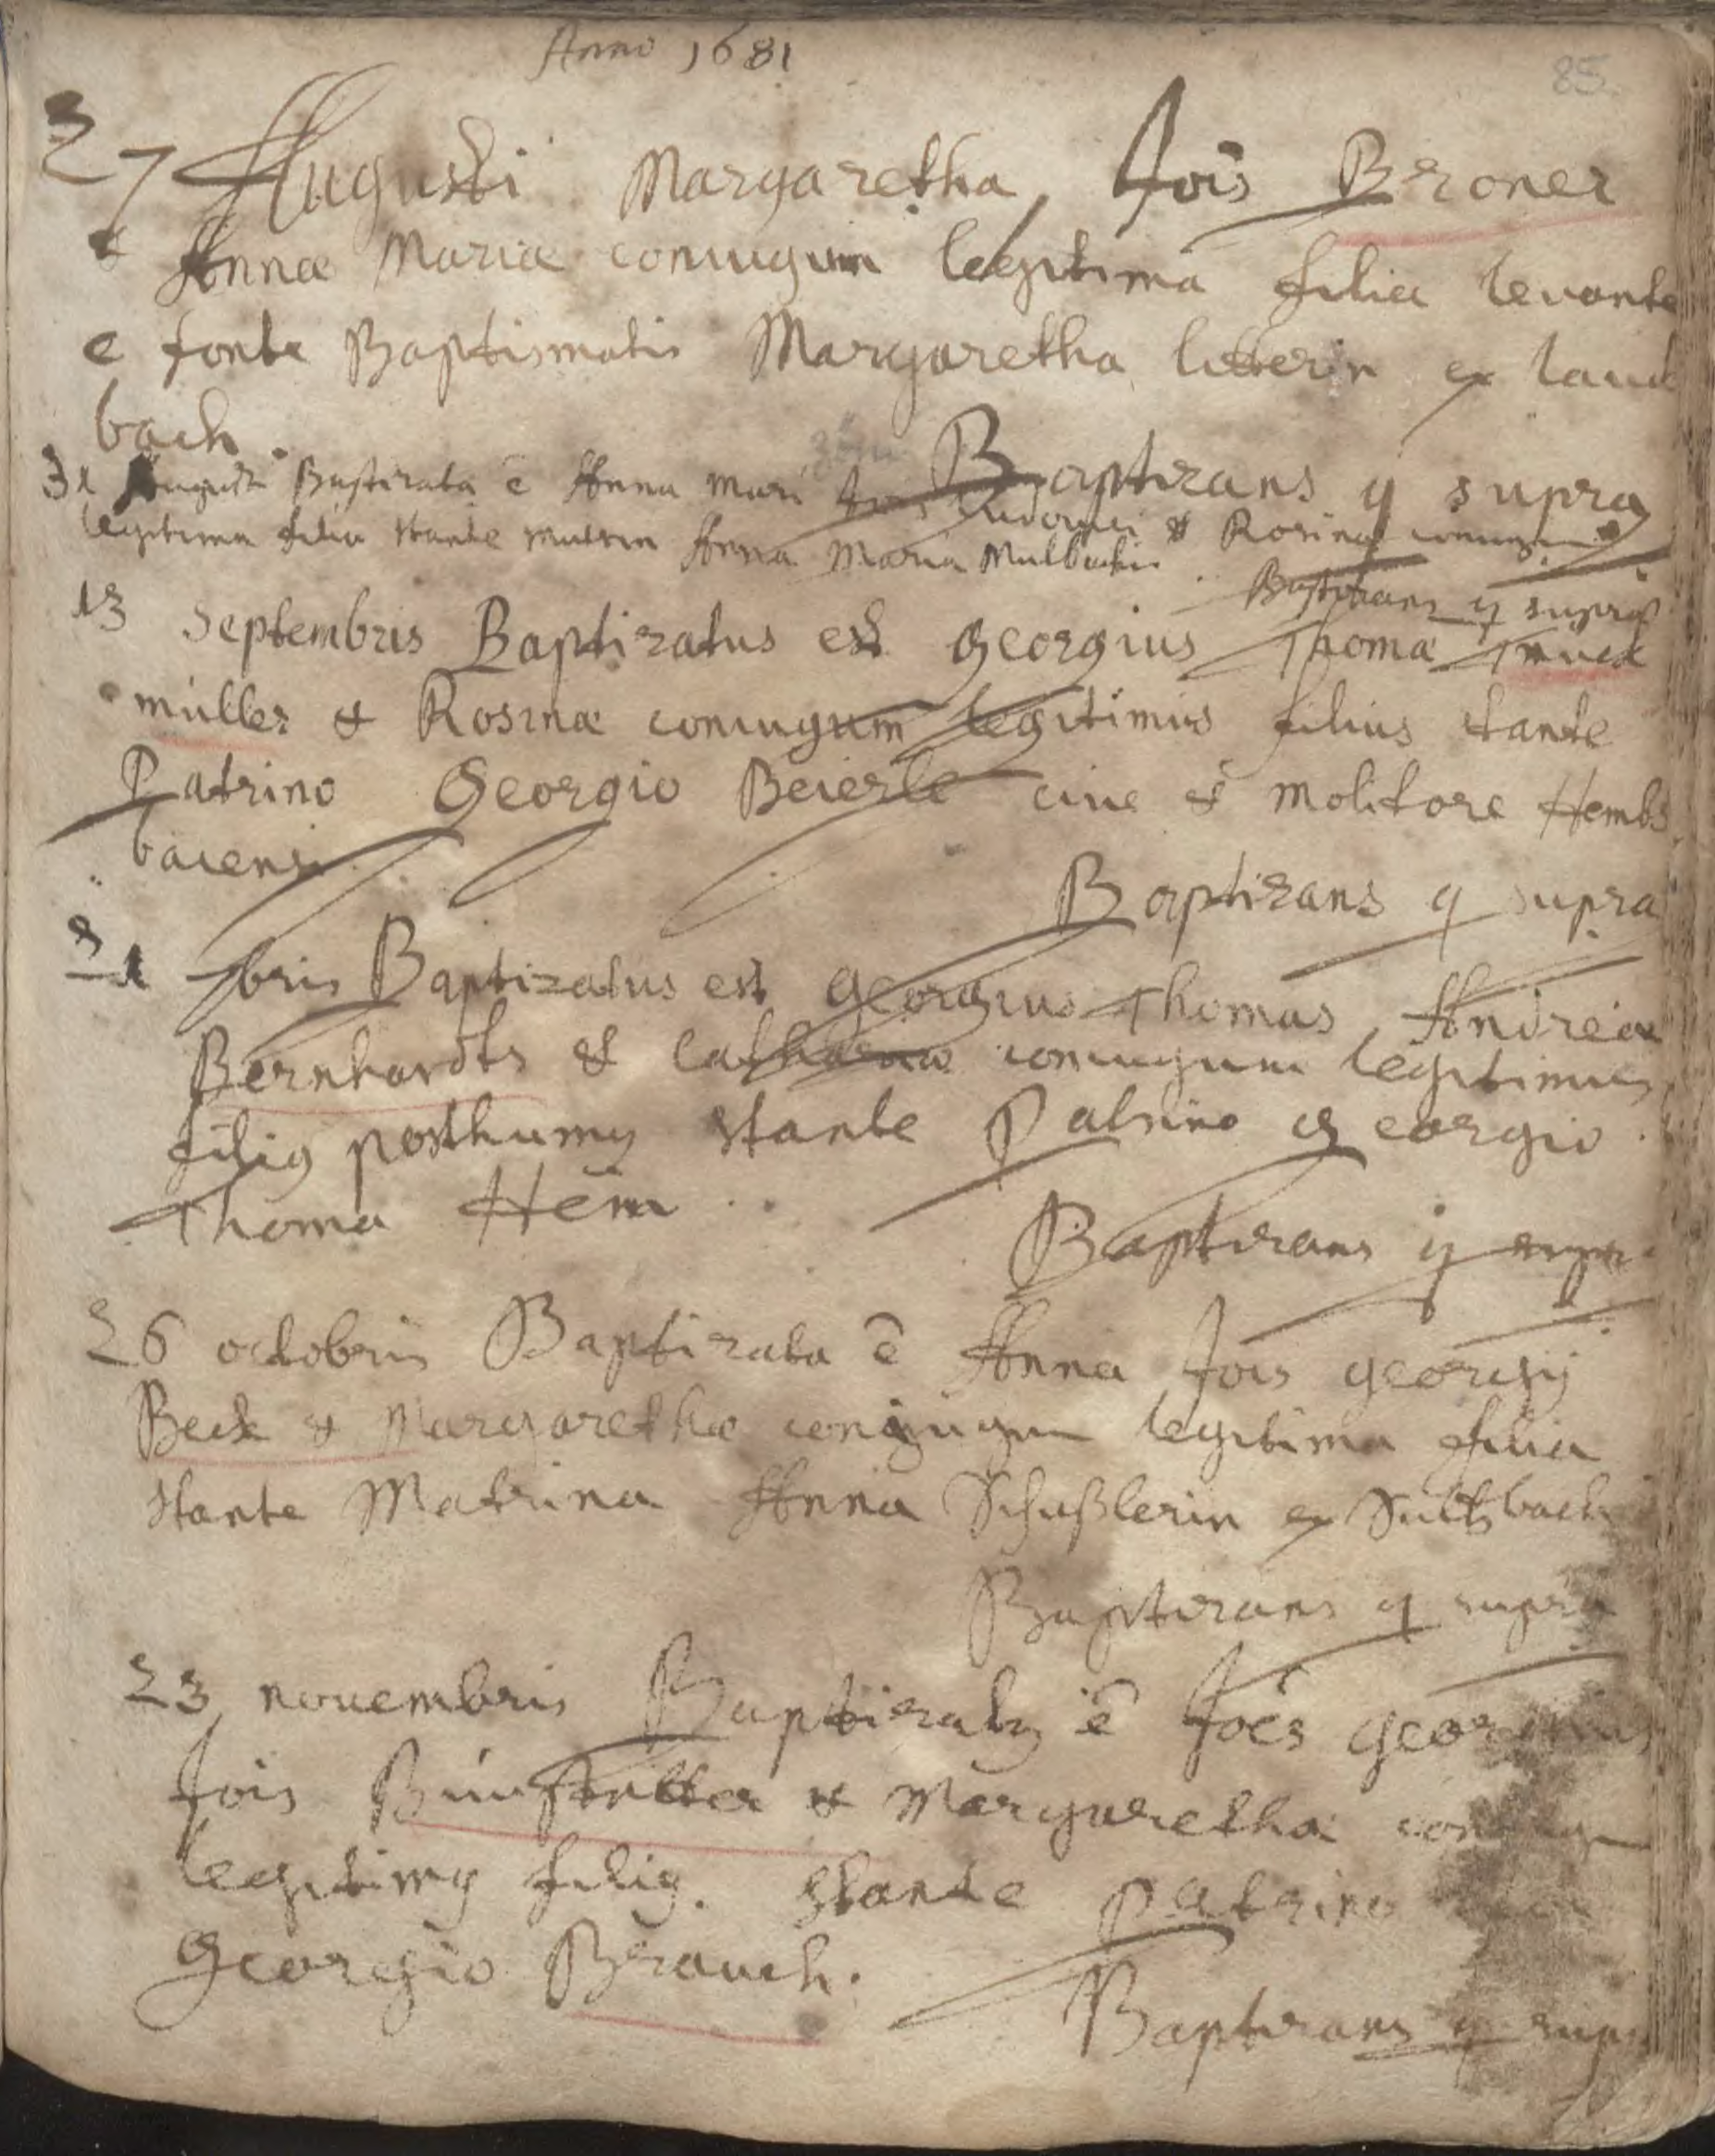 Anno 1681
85
27 Augusti Margaretha Jois Broner
& Annæ Mariæ coniugum legitima filia levante
e fonte Baptismatis Margaretha litterin ex laud
bach.
Baptizans q supra
31 Augusti Baptizata ē Anna Mari Jois Ludovici & Rosinæ coniugum
legitima filia stante matrin Anna Maria Mulbachin
Baptizans q supra
13 Septembris Baptizatus est Georgius Thomæ Truck
müller & Rosinæ coniugum legitimus filius stante
Patrino Georgio Beierle cive & molitore Hembs
bacensi.
Baptizans q supra
21 7bris Baptizatus est Georgius Thomas Andreæ
Bernhardts & Catharinæ coniugum legitimus
filig posthumg stante Patrino Georgio
Thoma Hēm
Baptizans q supra
26 octobris Baptizata ē Anna Jois georgij
Beck & Margarethæ coniugum legitima filia
stante Matrina Anna Schußlerin ex Sultzbach
Baptizans q supra
23 novembris Baptizatg ē Joēs georgius
Jois & Margaretha
legitimg filig. stante patrino
Georgio Brauch.
Baptizans q supr